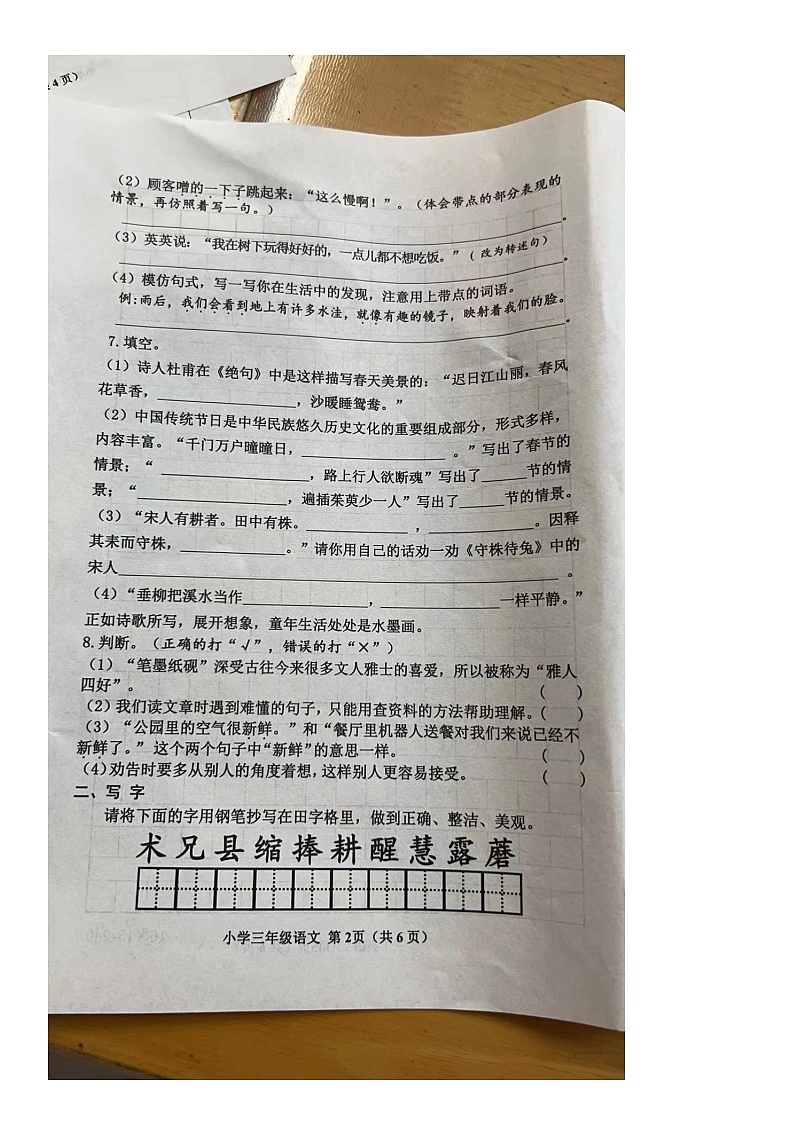 4 页）
（2）顾客噌的一下子跳起来：“这么慢啊！”。（体会带点的部分表现的
情景，再仿照着写一句。）
。
（3）英英说：“我在树下玩得好好的，一点儿都不想吃饭。”（改为转述句）
。
（4）模仿句式，写一写你在生活中的发现，注意用上带点的词语。
例：雨后，我们会看到地上有许多水洼，就像有趣的镜子，映射着我们的脸。
。
7. 填空。
（1）诗人杜甫在《绝句》中是这样描写春天美景的：“迟日江山丽，春风
花草香，________，沙暖睡鸳鸯。”
（2）中国传统节日是中华民族悠久历史文化的重要组成部分，形式多样，
内容丰富。“千门万户曈曈日，________。”写出了春节的
情景；“________，路上行人欲断魂”写出了____节的情
景；“________，遍插茱萸少一人”写出了____节的情景。
（3）“宋人有耕者。田中有株。________，________。因释
其耒而守株，________。”请你用自己的话劝一劝《守株待兔》中的
宋人________。
（4）“垂柳把溪水当作________，________一样平静。”
正如诗歌所写，展开想象，童年生活处处是水墨画。
8. 判断。（正确的打“√”，错误的打“×”）
（1）“笔墨纸砚”深受古往今来很多文人雅士的喜爱，所以被称为“雅人
四好”。（ ）
（2）我们读文章时遇到难懂的句子，只能用查资料的方法帮助理解。（ ）
（3）“公园里的空气很新鲜。”和“餐厅里机器人送餐对我们来说已经不
新鲜了。”这个两个句子中“新鲜”的意思一样。（ ）
（4）劝告时要多从别人的角度着想，这样别人更容易接受。（ ）
二、写 字
请将下面的字用钢笔抄写在田字格里，做到正确、整洁、美观。
术 兄 县 缩 捧 耕 醒 慧 露 蘑
小学三年级语文 第 2页（共 6 页）